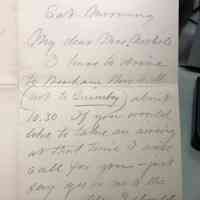 Sat. Morning
My dear Mrs. Nichols
I have to drive
to
(not to Quimby) about
10.30. If you would
like to take an airing
at that time I will
call for you – just
say yes or no to the